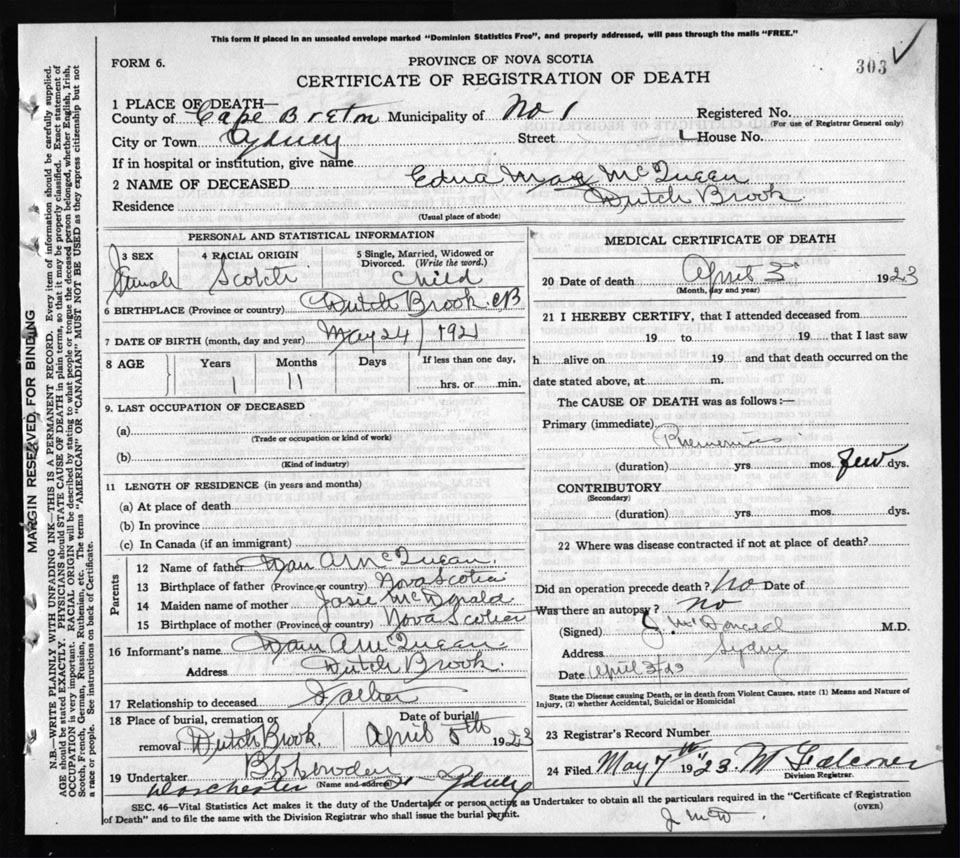 This form if placed in an unsealed envelope marked "Dominion Statistics Free", and properly addressed, will pass through the mails "FREE."
FORM 6.
PROVINCE OF NOVA SCOTIA
303
CERTIFICATE OF REGISTRATION OF DEATH
1 PLACE OF DEATH—
County of Cape Breton Municipality of No 1 Registered No.
(For use of Registrar General only)
City or Town Sydney Street House No.
If in hospital or institution, give name
2 NAME OF DECEASED Edna May McQuean
Residence Dutch Brook
(Usual place of abode)
PERSONAL AND STATISTICAL INFORMATION
3 SEX 4 RACIAL ORIGIN 5 Single, Married, Widowed or Divorced. (Write the word.)
Female Scotch Child
6 BIRTHPLACE (Province or country) Dutch Brook CB
7 DATE OF BIRTH (month, day and year) May 24/1921
8 AGE Years Months Days If less than one day,
1 11 hrs. or min.
9. LAST OCCUPATION OF DECEASED
(a)
(Trade or occupation or kind of work)
(b)
(Kind of industry)
11 LENGTH OF RESIDENCE (in years and months)
(a) At place of death
(b) In province
(c) In Canada (if an immigrant)
Parents
12 Name of father McQuean
13 Birthplace of father (Province or country) Nova Scotia
14 Maiden name of mother Josie McDonald
15 Birthplace of mother (Province or country) Nova Scotia
16 Informant's name McQuean
Address Dutch Brook
17 Relationship to deceased Father
18 Place of burial, cremation or removal Date of burial
Dutch Brook. April 5th 1923
19 Undertaker
(Name and address)
Dorchester St - Sydney
MEDICAL CERTIFICATE OF DEATH
20 Date of death April 3 1923
(Month, day and year)
21 I HEREBY CERTIFY, that I attended deceased from
19 to 19 that I last saw
h alive on 19 and that death occurred on the
date stated above, at m.
The CAUSE OF DEATH was as follows:—
Primary (immediate) Pneumonia
(duration) yrs. mos. few dys.
CONTRIBUTORY
(Secondary)
(duration) yrs. mos. dys.
22 Where was disease contracted if not at place of death?
Did an operation precede death? No Date of
Was there an autopsy? no
(Signed) J. McDonald M.D.
Address Sydney
Date April 3/23
State the Disease causing Death, or in death from Violent Causes, state (1) Means and Nature of Injury, (2) whether Accidental, Suicidal or Homicidal
23 Registrar's Record Number
24 Filed May 7th 1923. M Falconer
Division Registrar.
SEC. 46—Vital Statistics Act makes it the duty of the Undertaker or person acting as Undertaker to obtain all the particulars required in the "Certificate of Registration
of Death" and to file the same with the Division Registrar who shall issue the burial permit.
(OVER)
J. McD.
MARGIN RESERVED FOR BINDING
N.B.—WRITE PLAINLY WITH UNFADING INK—THIS IS A PERMANENT RECORD. Every item of information should be carefully supplied.
AGE should be stated EXACTLY. PHYSICIANS should STATE CAUSE OF DEATH in plain terms, so that it may be properly classified. Exact statement of
OCCUPATION is very important. RACIAL ORIGIN will be described by stating to what people or tongue the deceased person belonged, whether English, Irish,
Scotch, French, German, Russian, Ruthenian, etc. The terms "AMERICAN" OR "CANADIAN" MUST NOT BE USED as they express citizenship but not
a race or people. See instructions on back of Certificate.